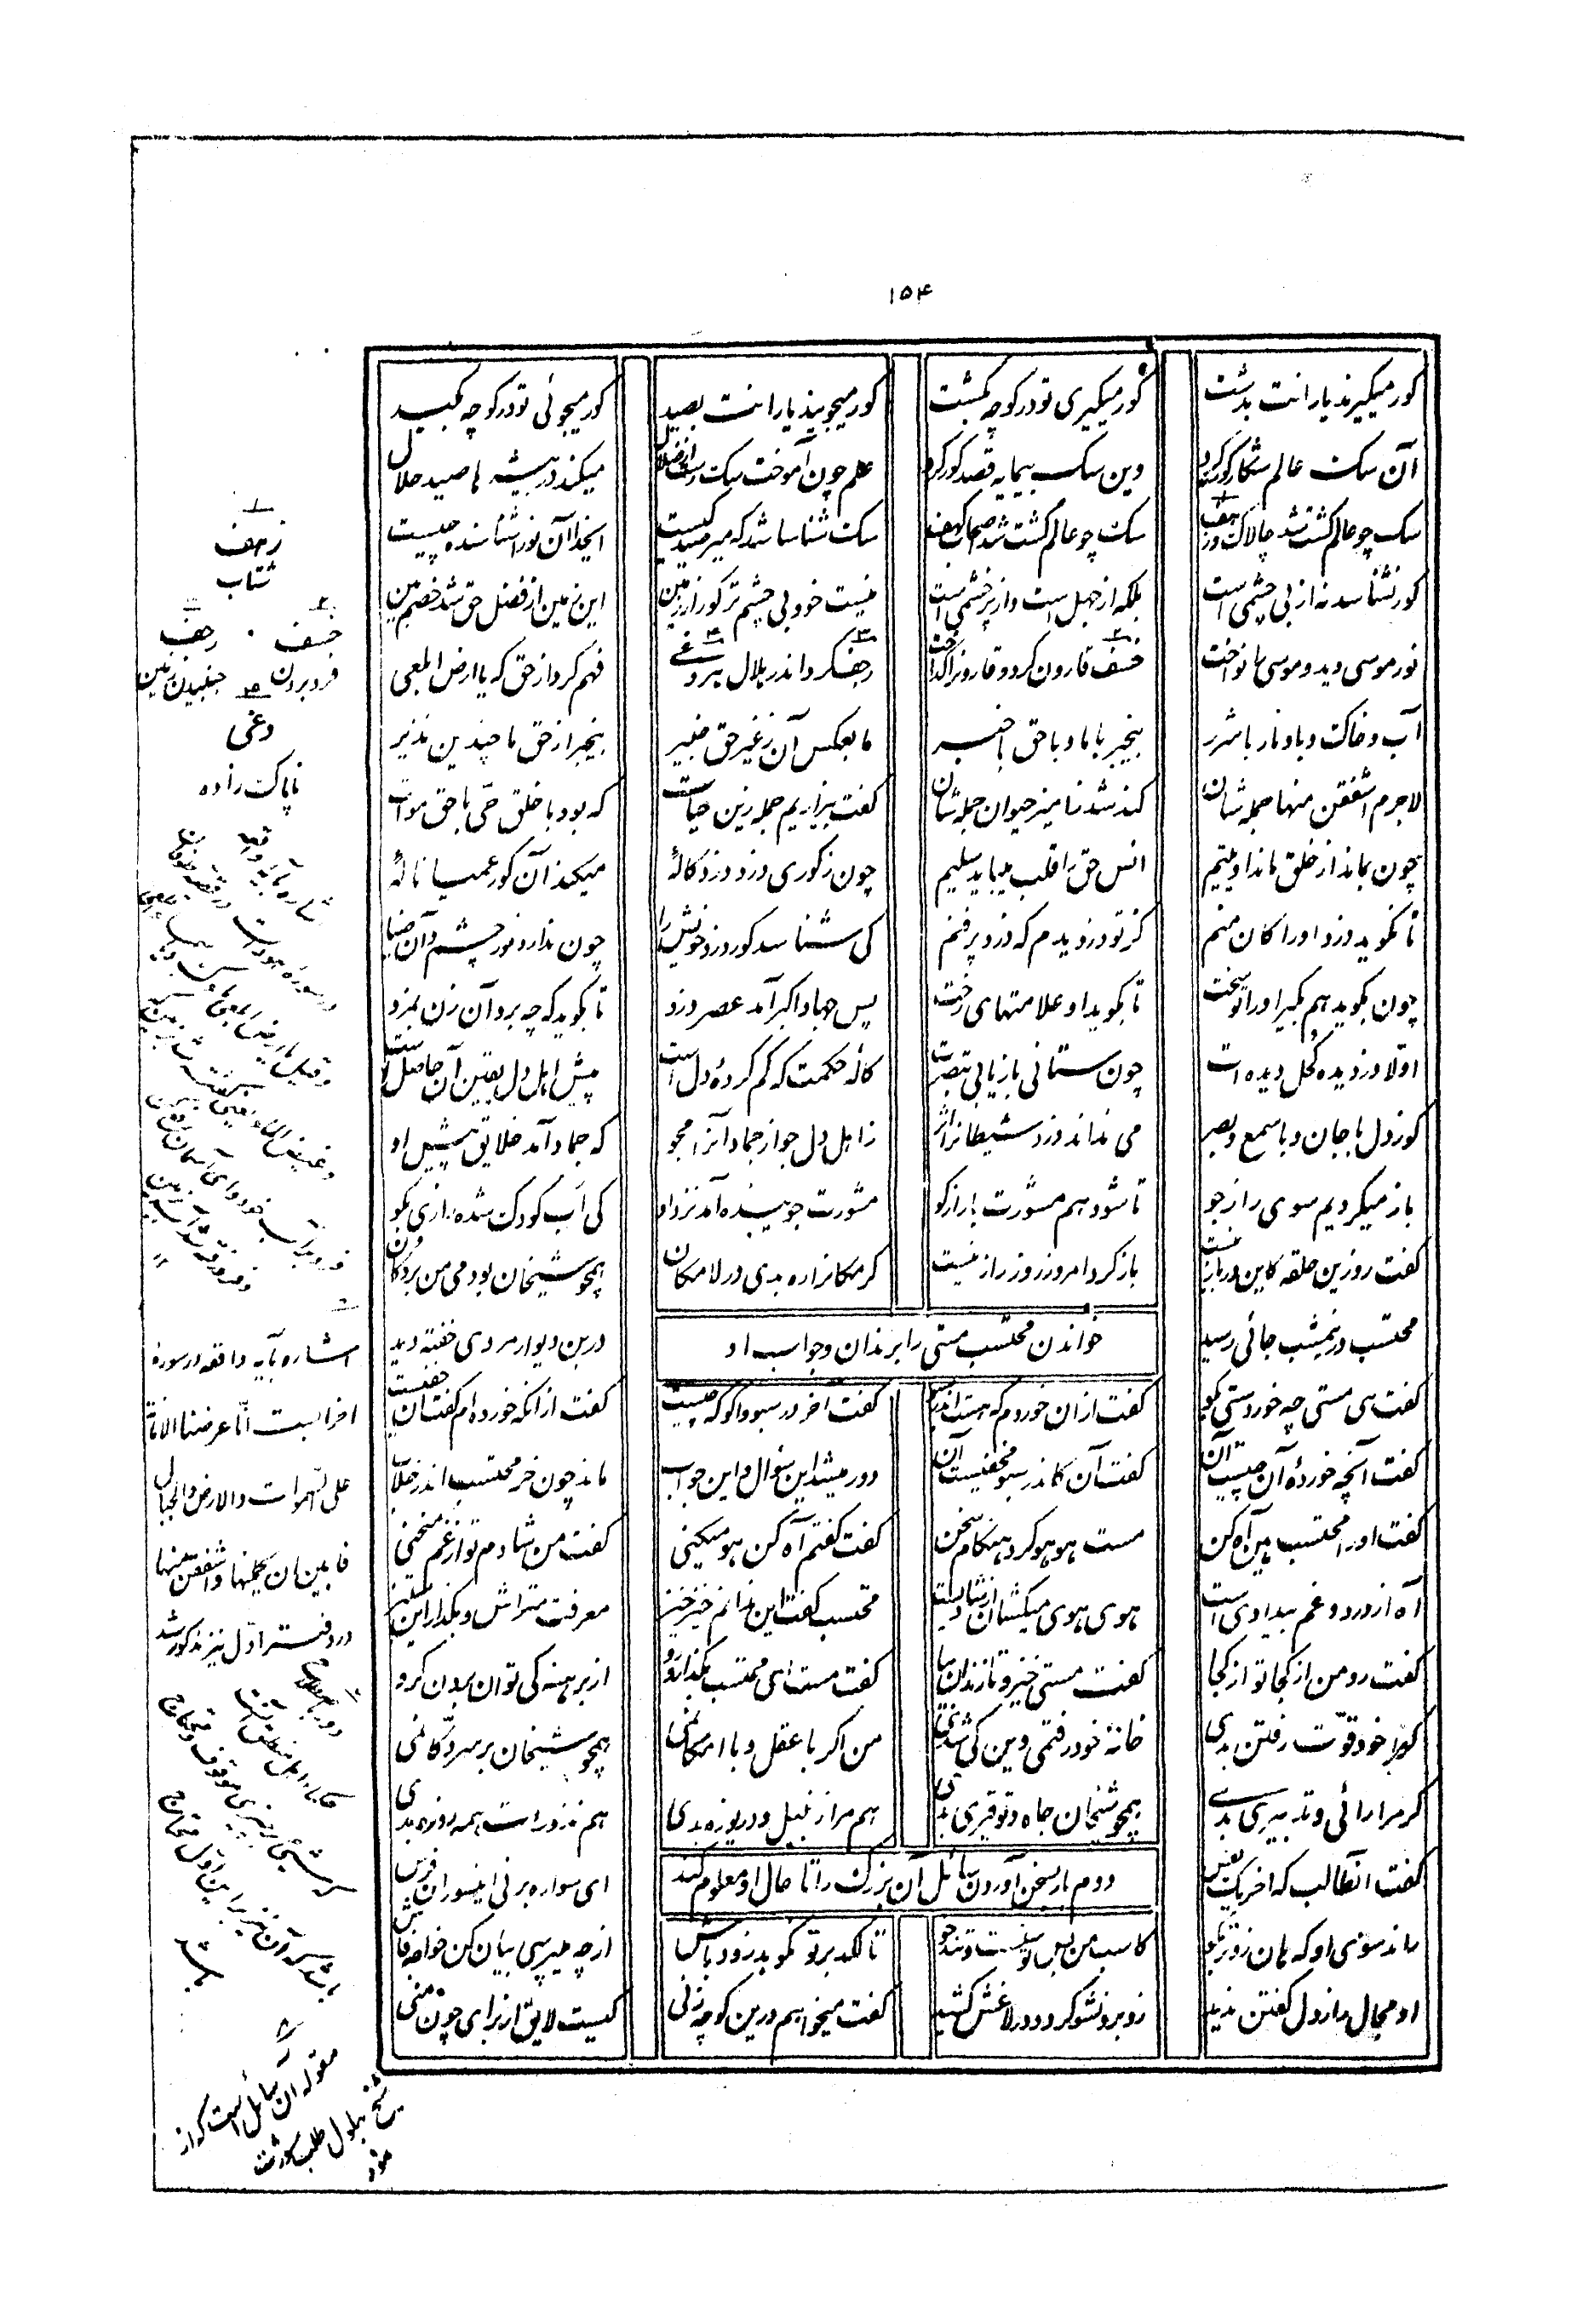 ۱۵۴
کور میگیرند یارانت بدشت کور میگیری تو در کوچه بگشت کور میجویند یارانت بصید کور میجوئی تو در کوچه بکید
آن سگ عالم شکار کور کرد وین سگ بیمایه قصد کور کرد علم چون آموخت سگ رست از ضلال میکند در بیشه ها صید حلال
سگ چو عالم گشت شد چالاک و زحف سگ چو عالم گشت شد اصحاب کهف سگ شناسا شد که میر صید کیست ایخدا آن نور اشناسنده چیست
کور نشناسد نه از بی چشمی است بلکه از جهل است و از پر خشمی است نیست خود بی چشم تر کور از زمین این زمین از فضل حق شد خصم بین
نور موسی دید و موسی را نواخت خسف قارون کرد و قارون را گداخت رجف کرد اندر هلاک هر دغی فهم کرد از حق که یا ارض ابلعی
آب و خاک و باد و نار با شرر بیخبر با ما و با حق با خبر ما بعکس آن ز غیر حق خبیر بیخبر از حق با چندین نذیر
لاجرم اشفقن منها جمله شان کند شد ز آمیز حیوان جمله شان گفت بیزاریم جمله زین حیات که بود با خلق حی با حق موات
چون بماند از خلق ماند او یتیم انس حق را قلب میباید سلیم چون ز کوری دزد دزدد کالهٔ میکند آن کور عمیا نالهٔ
تا نگوید دزد او را کان منم کز تو دزدیدم که دزد پر فنم کی شناسد کور دزد خویش را چون ندارد نور چشم و آن ضیا
چون بگوید هم بگیر او را تو سخت تا بگوید او علامتهای رخت پس جهاد اکبر آمد عصر دزد تا بگوید که چه برد آن زن بمزد
اولا دزدیده کحل دیده ات چون ستانی باز یابی تبصرت کالهٔ حکمت که گم کردهٔ دل است پیش اهل دل یقین آن حاصل است
کور دل با جان و با سمع و بصر می نداند دزد شیطان را اثر ز اهل دل جو از جماد آن را مجو که جماد آمد خلایق پیش او
باز میگردیم سوی راز جو تا شود هم مشورت با راز گو مشورت جوینده آمد نزد او کی اب کودک شده رازی بگو
گفت رو زین حلقه کاین در باز نیست باز گرد امروز روز راز نیست گر مکان را ره بدی در لامکان همچو شیخان بودمی من بر دکان
خواندن محتسب مستی را بزندان و جواب او
محتسب در نیمشب جائی رسید در بن دیوار مردی خفته دید
گفت هی مستی چه خوردستی بگو گفت از آن خوردم که هست اندر سبو گفت آخر در سبو واگو که چیست گفت از انکه خورده ام گفت آن خفیست
گفت آنچه خوردهٔ آن چیست آن گفت آن کاندر سبو مخفیست آن دور میشد این سؤال و این جواب ماند چون خر محتسب اندر خلاب
گفت او را محتسب هین آه کن مست هو هو کرد هنگام سخن گفت گفتم آه کن هو میکنی گفت من شادم تو از غم منحنی
آه از درد و غم بیدادی است هوی هوی میکشان از شادیست محتسب گفت این ندانم خیز خیز معرفت متراش و بگذار این ستیز
گفت رو من از کجا تو از کجا گفت مستی خیز تا زندان بیا گفت مست ای محتسب بگذار و رو از برهنه کی توان بردن گرو
گر مرا خود قوت رفتن بدی خانهٔ خود رفتمی وین کی شدی من اگر با عقل و با امکانمی همچو شیخان بر سر دکانمی
گر مرا رائی و تدبیری بدے همچو شیخان جاه و توقیری بدی هم مرا زنبیل و دریوزه بدی هم نذورات همه روزه بدی
دوم بار بسخن آوردن سائل آن بزرگ را تا حال او معلوم کند
گفت آنطالب که آخر یک نفس ای سواره بر نی اینسو ران فرس
راند سوی او که هان زوتر بگو کاسب من بس توسنست و تندخو تا لگد بر تو نکوبد زود باش از چه میپرسی بیان کن خواجه فاش
او مجال راز دل گفتن ندید زو برون شو کرد و در لاغش کشید گفت میخواهم درین کوچه زنی کیست لایق از برای چون منی
زحف
شتاب
خسف
فرو بردن
رجف
جنبیدن زمین
دغی
ناپاک زاده
اشاره بآیه واقعه در سوره
احزابست انّا عرضنا الامانة
علی السموات والارض والجبال
فابین ان یحملنها واشفقن منها
در دفتر اول نیز مذکور شد
مقوله آن سائل است که از
شیخ بهلول طلب مشورت
نمود